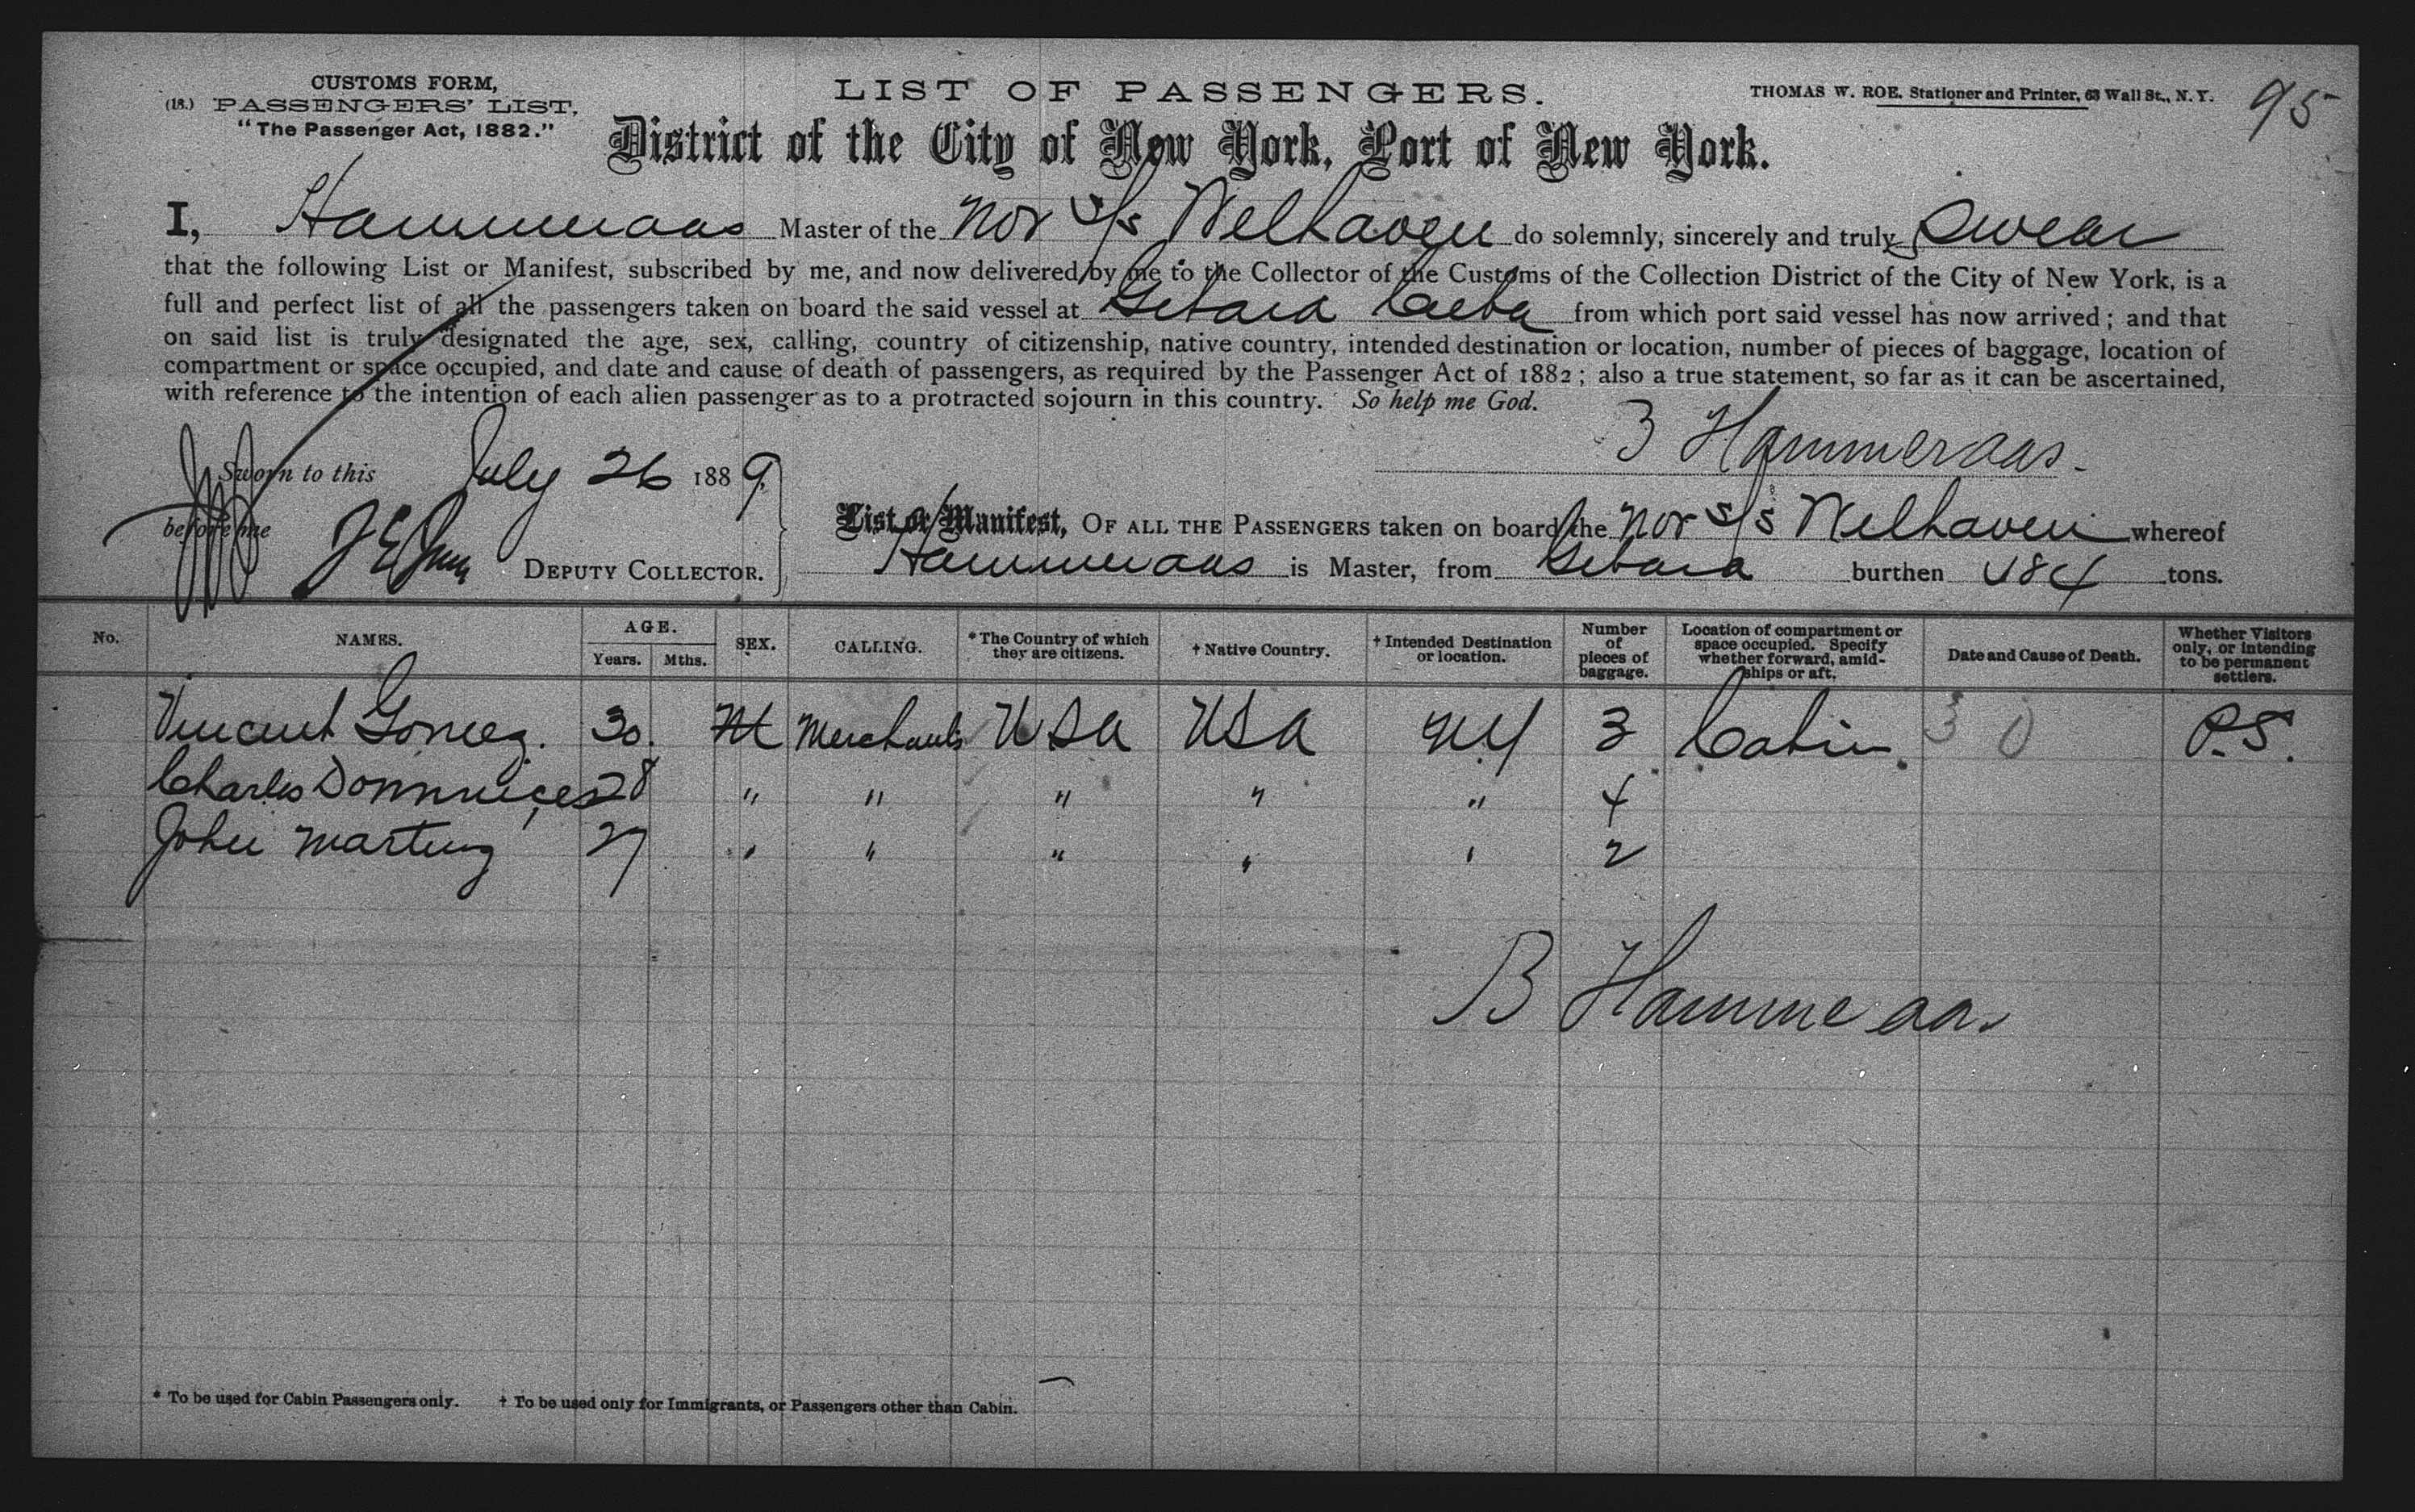 CUSTOMS FORM,
(18.) PASSENGERS' LIST,
"The Passenger Act, 1882."
LIST OF PASSENGERS.
THOMAS W. ROE, Stationer and Printer, 63 Wall St., N. Y.
95
District of the City of New York, Port of New York.
I, Hammeraas Master of the Nor S/S Welhaven do solemnly, sincerely and truly Swear
that the following List or Manifest, subscribed by me, and now delivered by me to the Collector of the Customs of the Collection District of the City of New York, is a
full and perfect list of all the passengers taken on board the said vessel at Gibara Cuba from which port said vessel has now arrived; and that
on said list is truly designated the age, sex, calling, country of citizenship, native country, intended destination or location, number of pieces of baggage, location of
compartment or space occupied, and date and cause of death of passengers, as required by the Passenger Act of 1882; also a true statement, so far as it can be ascertained,
with reference to the intention of each alien passenger as to a protracted sojourn in this country. So help me God.
B Hammeraas.
Sworn to this July 26 1889.
before me
DEPUTY COLLECTOR.
List or Manifest, OF ALL THE PASSENGERS taken on board the Nor S/S Welhaven whereof
Hammeraas is Master, from Gibara burthen 484 tons.
No. NAMES. AGE. Years. Mths. SEX. CALLING. * The Country of which they are citizens. † Native Country. † Intended Destination or location. Number of pieces of baggage. Location of compartment or space occupied. Specify whether forward, amid-ships or aft. Date and Cause of Death. Whether Visitors only, or intending to be permanent settlers.
Vincent Gomez. 30. M Merchants USA USA NY 3 Cabin 30 P.S.
Charles 28 " " " " " 4
John Marting 27 " " " " " 2
B Hammeraas
* To be used for Cabin Passengers only. † To be used only for Immigrants, or Passengers other than Cabin.